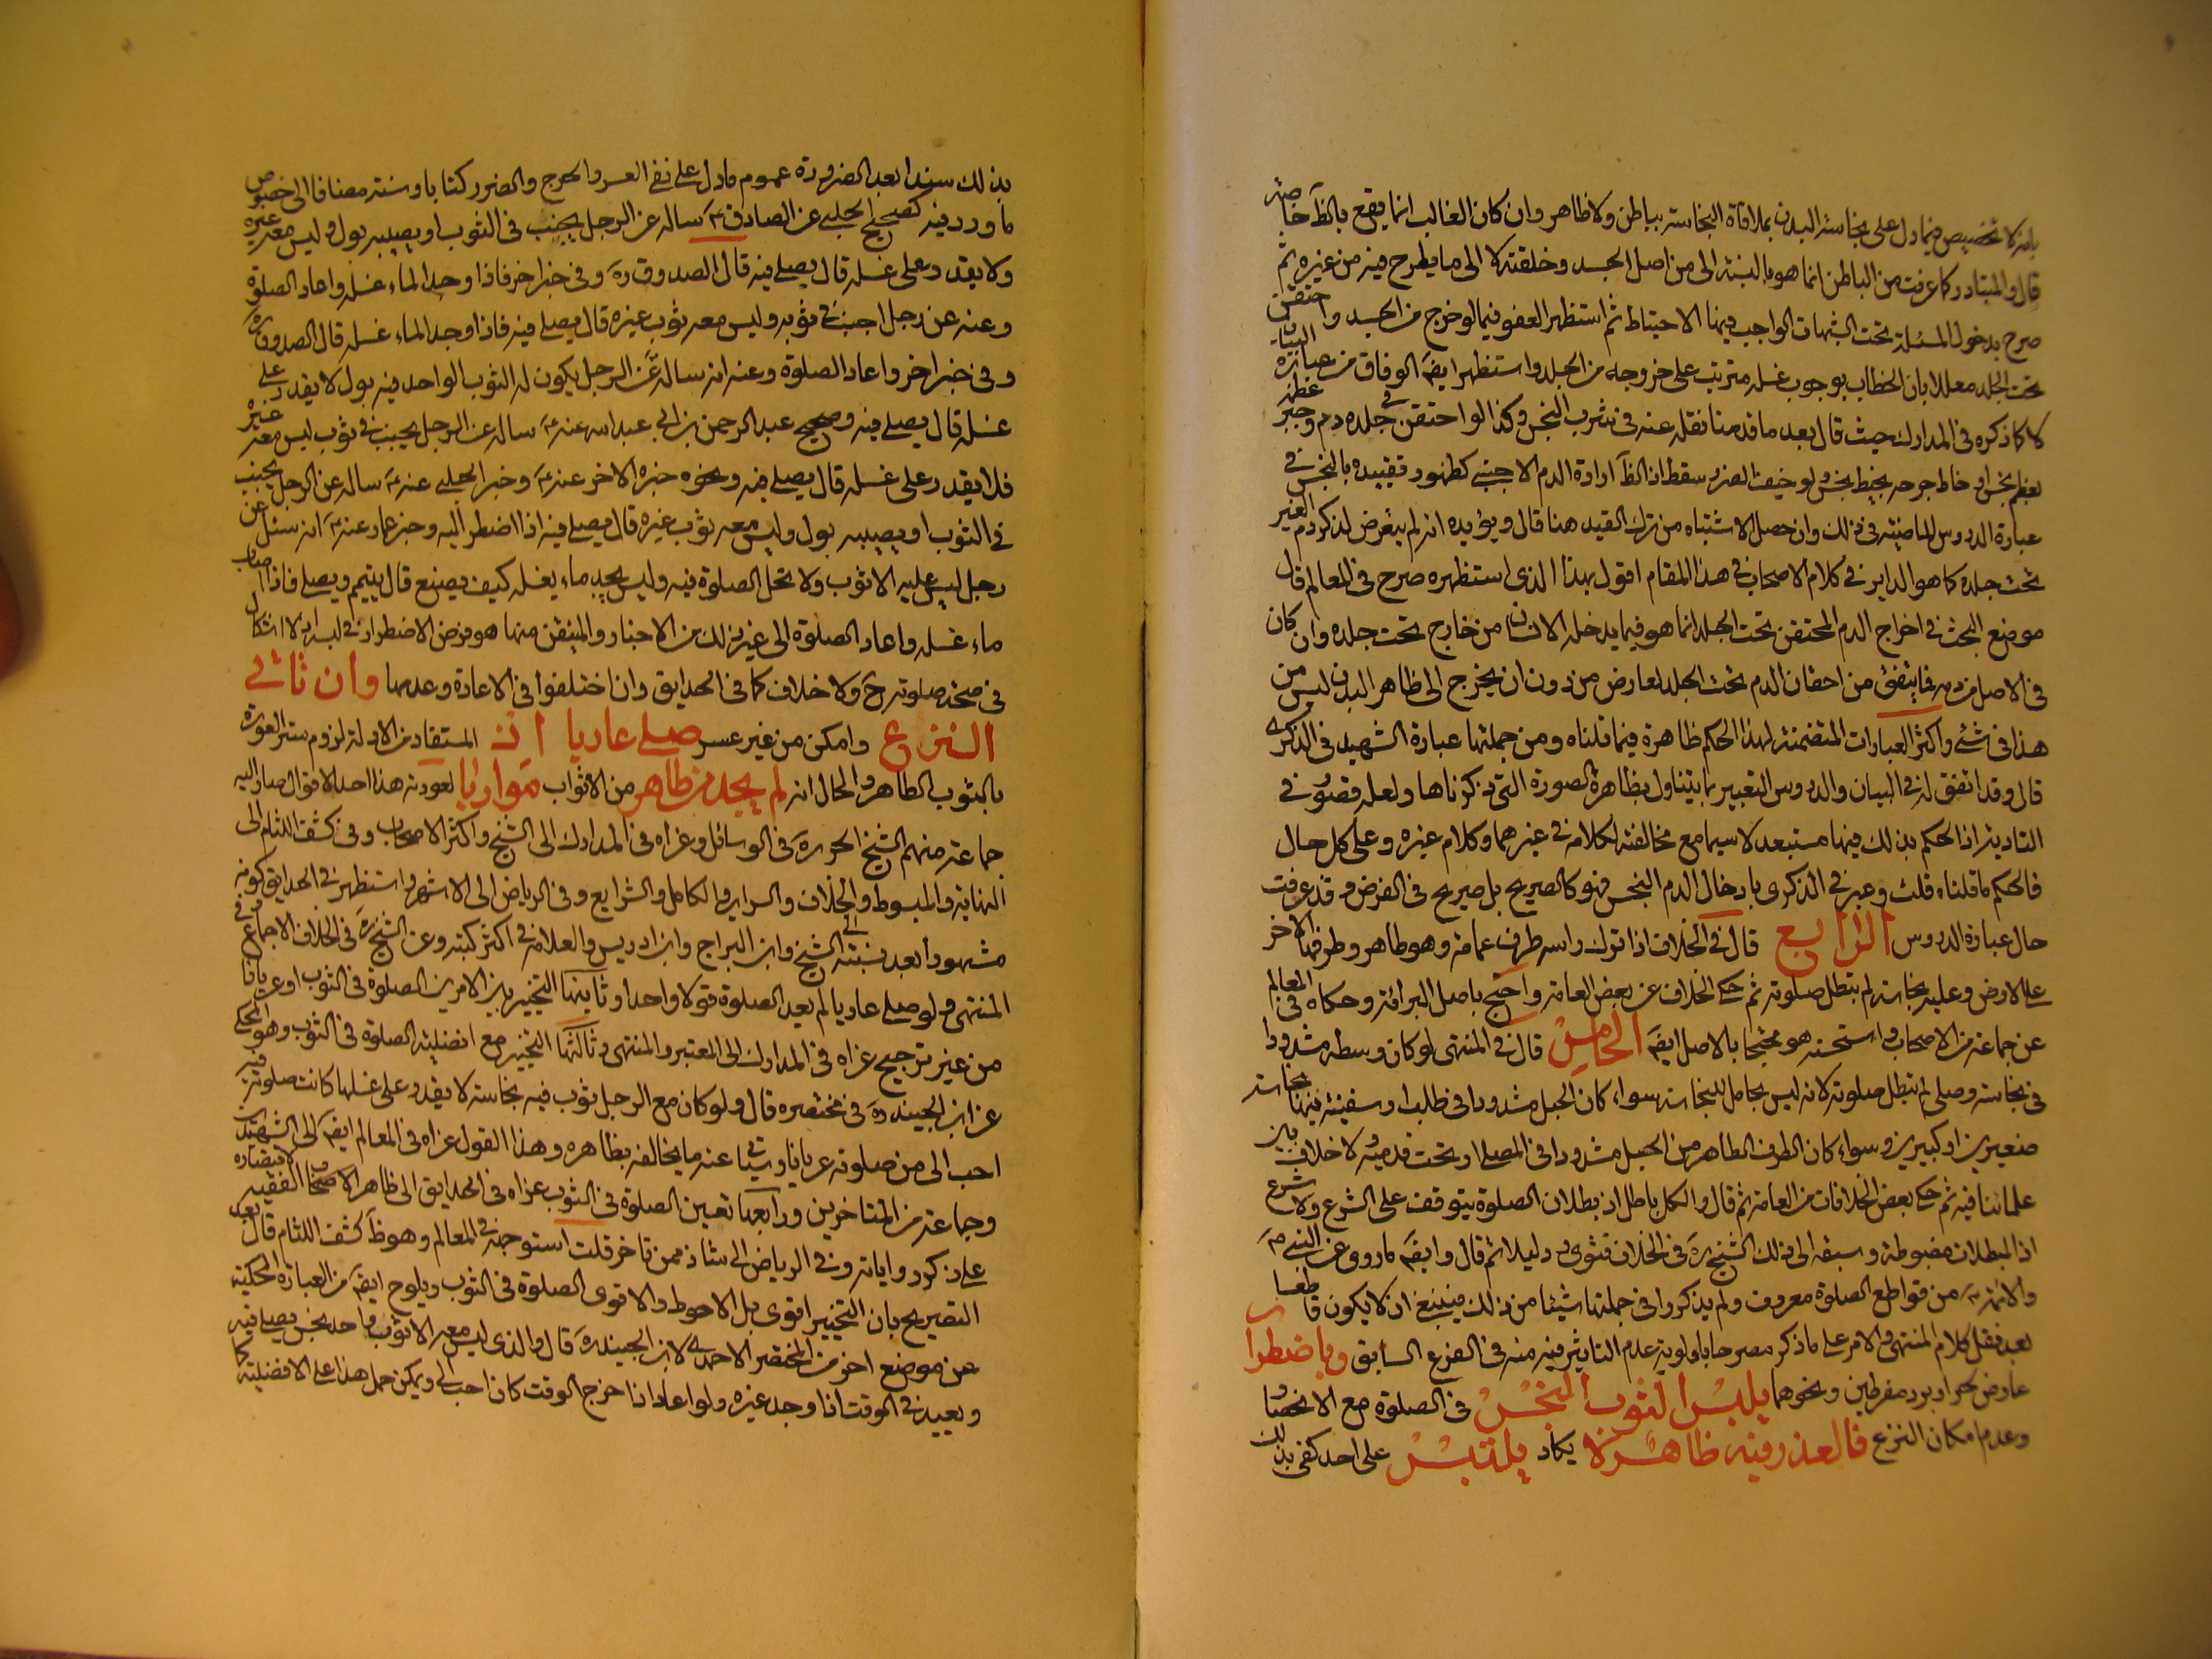 بانه لا تخصيص فيما دل على نجاسة البدن بملاقاة النجاسة بباطن ولا ظاهر وان كان الغالب انما يقع بالظ خاصة
قال والمتبادر كما عرفت من الباطن انما هو بالنسبة الى من اصل الجسد وخلقته لا الى ما يطرح فيه من غيره ثم
صرح بدخول المسئلة تحت الشبهات الواجب فيها الاحتياط ثم استظهر العفو فيما لو خرج من الجسد واحتقن
تحت الجلد معللا بان الخطاب بوجوب غسله مترتب على خروجه من الجلد واستظهر ايضَ الوفاق من عبارة البيان
لا كما ذكره في المدارك حيث قال بعد ما قدمنا نقله عنه في شرب النجس وكذا لو احتقن في جلده دم وجبر عظمه
بعظم نجس او خاط جرحه بخيط نجس ولو خيف الضرر سقط اذ الظَ ارادة الدم الاجنبي كظهور تقييده بالنجس في
عبارة الدروس الماضية في ذلك وان حصل الاشتباه من ترك القيد هنا قال ويؤيده انه لم يتعرض لذكر دم الغير
تحت جلده كما هو الداير في كلام الاصحاب في هذا المقام اقول بهذا الذى استظهره صرح في المعالم قال
موضع البحث في اخراج الدم المحتقن تحت الجلد انما هو فيما يدخله الانسان من خارج تحت جلده وان كان
في الاصل من دمه فما يتفق من احقان الدم تحت الجلد لعارض من دون ان يخرج الى ظاهر البدن ليس من
هذا في شئ واكثر العبارات المتضمنة لهذا الحكم ظاهرة فيما قلناه ومن جملتها عبارة الشهيد في الذكرى
قال وقد اتفق له في البيان والدروس التعبير بما يتناول بظاهره الصورة التى ذكرناها ولعله قصور في
التادية اذ الحكم بذلك فيها مستبعد لا سيما مع مخالفته لكلامه في غيرهما وكلام غيره وعلى كل حال
فالحكم ما قلناه قلت وعبر في الذكرى بادخال الدم النجس فهو كالصريح بل صريح في الفرض وقد عرفت
حال عبارة الدروس الرابع قال في الخلاف اذا ترك راسه طرف عمامة وهو طاهر وطرفها الاخر
على الارض وعليه نجاسة لم تبطل صلوته ثم حكى الخلاف عن بعض العامة واحتج باصل البرائة وحكاه في المعالم
عن جماعة من الاصحاب واستحسنه هو محتجا بالاصل ايضَ الخامس قال في المنتهى لو كان وسطه مشدودا
في نجاسة وصلى لم تبطل صلوته لانه ليس بحامل للنجاسة سواء كان الحبل مشدودا في كلب او سفينة فيها نجاسة
صغيرين او كبيرين وسواء كان الطرف الطاهر من الحبل مشدودا في المصلى او تحت قدميه لا خلاف بين
علمائنا فيه ثم حكى بعض الخلافات من العامة ثم قال والكل باطل اذ بطلان الصلوة يتوقف على الشرع ولا شرع
اذ المبطلات مضبوطة وسبقه الى ذلك الشيخ رهَ في الخلاف فتوى ودليلا ثم قال وايضَ ما روى عن النبي صَ
والائمة عَ من قواطع الصلوة معروف ولم يذكروا في جملتها شيئا من ذلك فينبغى ان لا يكون قاطعا
بعد نقل كلام المنتهى والامر على ما ذكر مصرحا باولوية عدم التاثير فيه منه في الفرع السابق وما ضطرا
عارض لحر او برد مفرطين ونحوهما يلبس الثوب النجس في الصلوة مع الانحصار
وعدم امكان النزع فالعذر فيه ظاهر لا يكاد يلتبس على احد كفى بذلك
بذلك سندا بعد الضرورة عموم ما دل على نفى العسر والحرج والضرر كتابا وسنة مضافا الى خصوص
ما ورد فيه كصحيح الحلبى عن الصادق عَ ساله عن الرجل يجنب في الثوب او يصيبه بول وليس معه غيره
ولا يقدر على غسله قال يصلى فيه قال الصدوق رهَ وفى خبر اخر فاذا وجد الماء غسله واعاد الصلوة
وعنه عن رجل اجنب في ثوبه وليس معه ثوب غيره قال يصلى فيه فاذا وجد الماء غسله قال الصدوق رهَ
وفى خبر اخر واعاد الصلوة وعنه انه ساله عَ عن الرجل يكون له الثوب الواحد فيه بول لا يقدر على
غسله قال يصلى فيه وصحيح عبد الرحمن بن ابى عبد الله عنه عَ ساله عن الرجل يجنب في ثوب ليس معه غيره
فلا يقدر على غسله قال يصلى فيه ونحوه خبره الاخر عنه عَ وخبر الحلبى عنه عَ ساله عن الرجل يجنب
في الثوب او يصيبه بول وليس معه ثوب غيره قال يصلى فيه اذا اضطر اليه وخبر عمار عنه عَ انه سئل عن
رجل ليس عليه الا ثوب ولا تحل الصلوة فيه وليس يجد ماء يغسله كيف يصنع قال يتيمم ويصلى فاذا اصاب
ماء غسله واعاد الصلوة الى غير ذلك من الاخبار والمتيقن منها هو فرض الاضطرار في لبسه اذ لا اشكال
في صحة صلوته حَ ولا خلاف كما في الحدايق وان اختلفوا في الاعادة وعدمها وان تاتى
النزع وامكن من غير عسر صلى عاريا ان المستفاد من الادلة لزوم ستر العورة
بالثوب الطاهر والحال انه لم يجد من طاهر من الاثواب مواريا لعورته هذا احد الاقوال صار اليه
جماعة منهم الشيخ الحر رهَ في الوسائل وعزاه في المدارك الى الشيخ واكثر الاصحاب وفى كشف اللثام الى
النهاية والمبسوط والخلاف والسراير والكامل والشرايع وفى الرياض الى الاشهر واستظهر في الحدايق كونه
مشهورا بعد نسبته الى الشيخ وابن البراج وابن ادريس والعلامة في اكثر كتبه وعن الشيخ رهَ في الخلاف الاجماع وفى
المنتهى ولو صلى عاريا لم يعد الصلوة قولا واحدا وثانيها التخيير بين الامرين الصلوة في الثوب او عريانا
من غير ترجيح عزاه في المدارك الى المعتبر والمنتهى وثالثها التخيير مع افضلية الصلوة في الثوب وهو المحكى
عن ابن الجنيد رهَ في مختصره قال ولو كان مع الرجل ثوب فيه نجاسة لا يقدر على غسلها كانت صلوته فيه
احب الى من صلوته عريانا وسياتى عنه ما يخالفه بظاهره وهذا القول عزاه في المعالم ايضَ الى الشهيد
وجماعة من المتاخرين ورابعها تعين الصلوة في الثوب عزاه في الحدايق الى ظاهر الاصحاب الفقيه لاقتصاره
على ذكر رواياته وفى الرياض الى شاذ ممن تاخر قلت استوجهه في المعالم وهو ظَ كشف اللثام قال بعد
التصريح بان التخيير اقوى بل الاحوط والاقوى الصلوة في الثوب ويلوح ايضَ من العبارة المحكية
عن موضع اخر من المختصر الاحمدى لابن الجنيد رهَ قال والذى ليس معه الا ثوب واحد نجس يصلى فيه
ويعيد في الوقت اذا وجد غيره ولو اعاد اذا خرج الوقت كان احب الى ويمكن حمل هذا على الافضلية كما